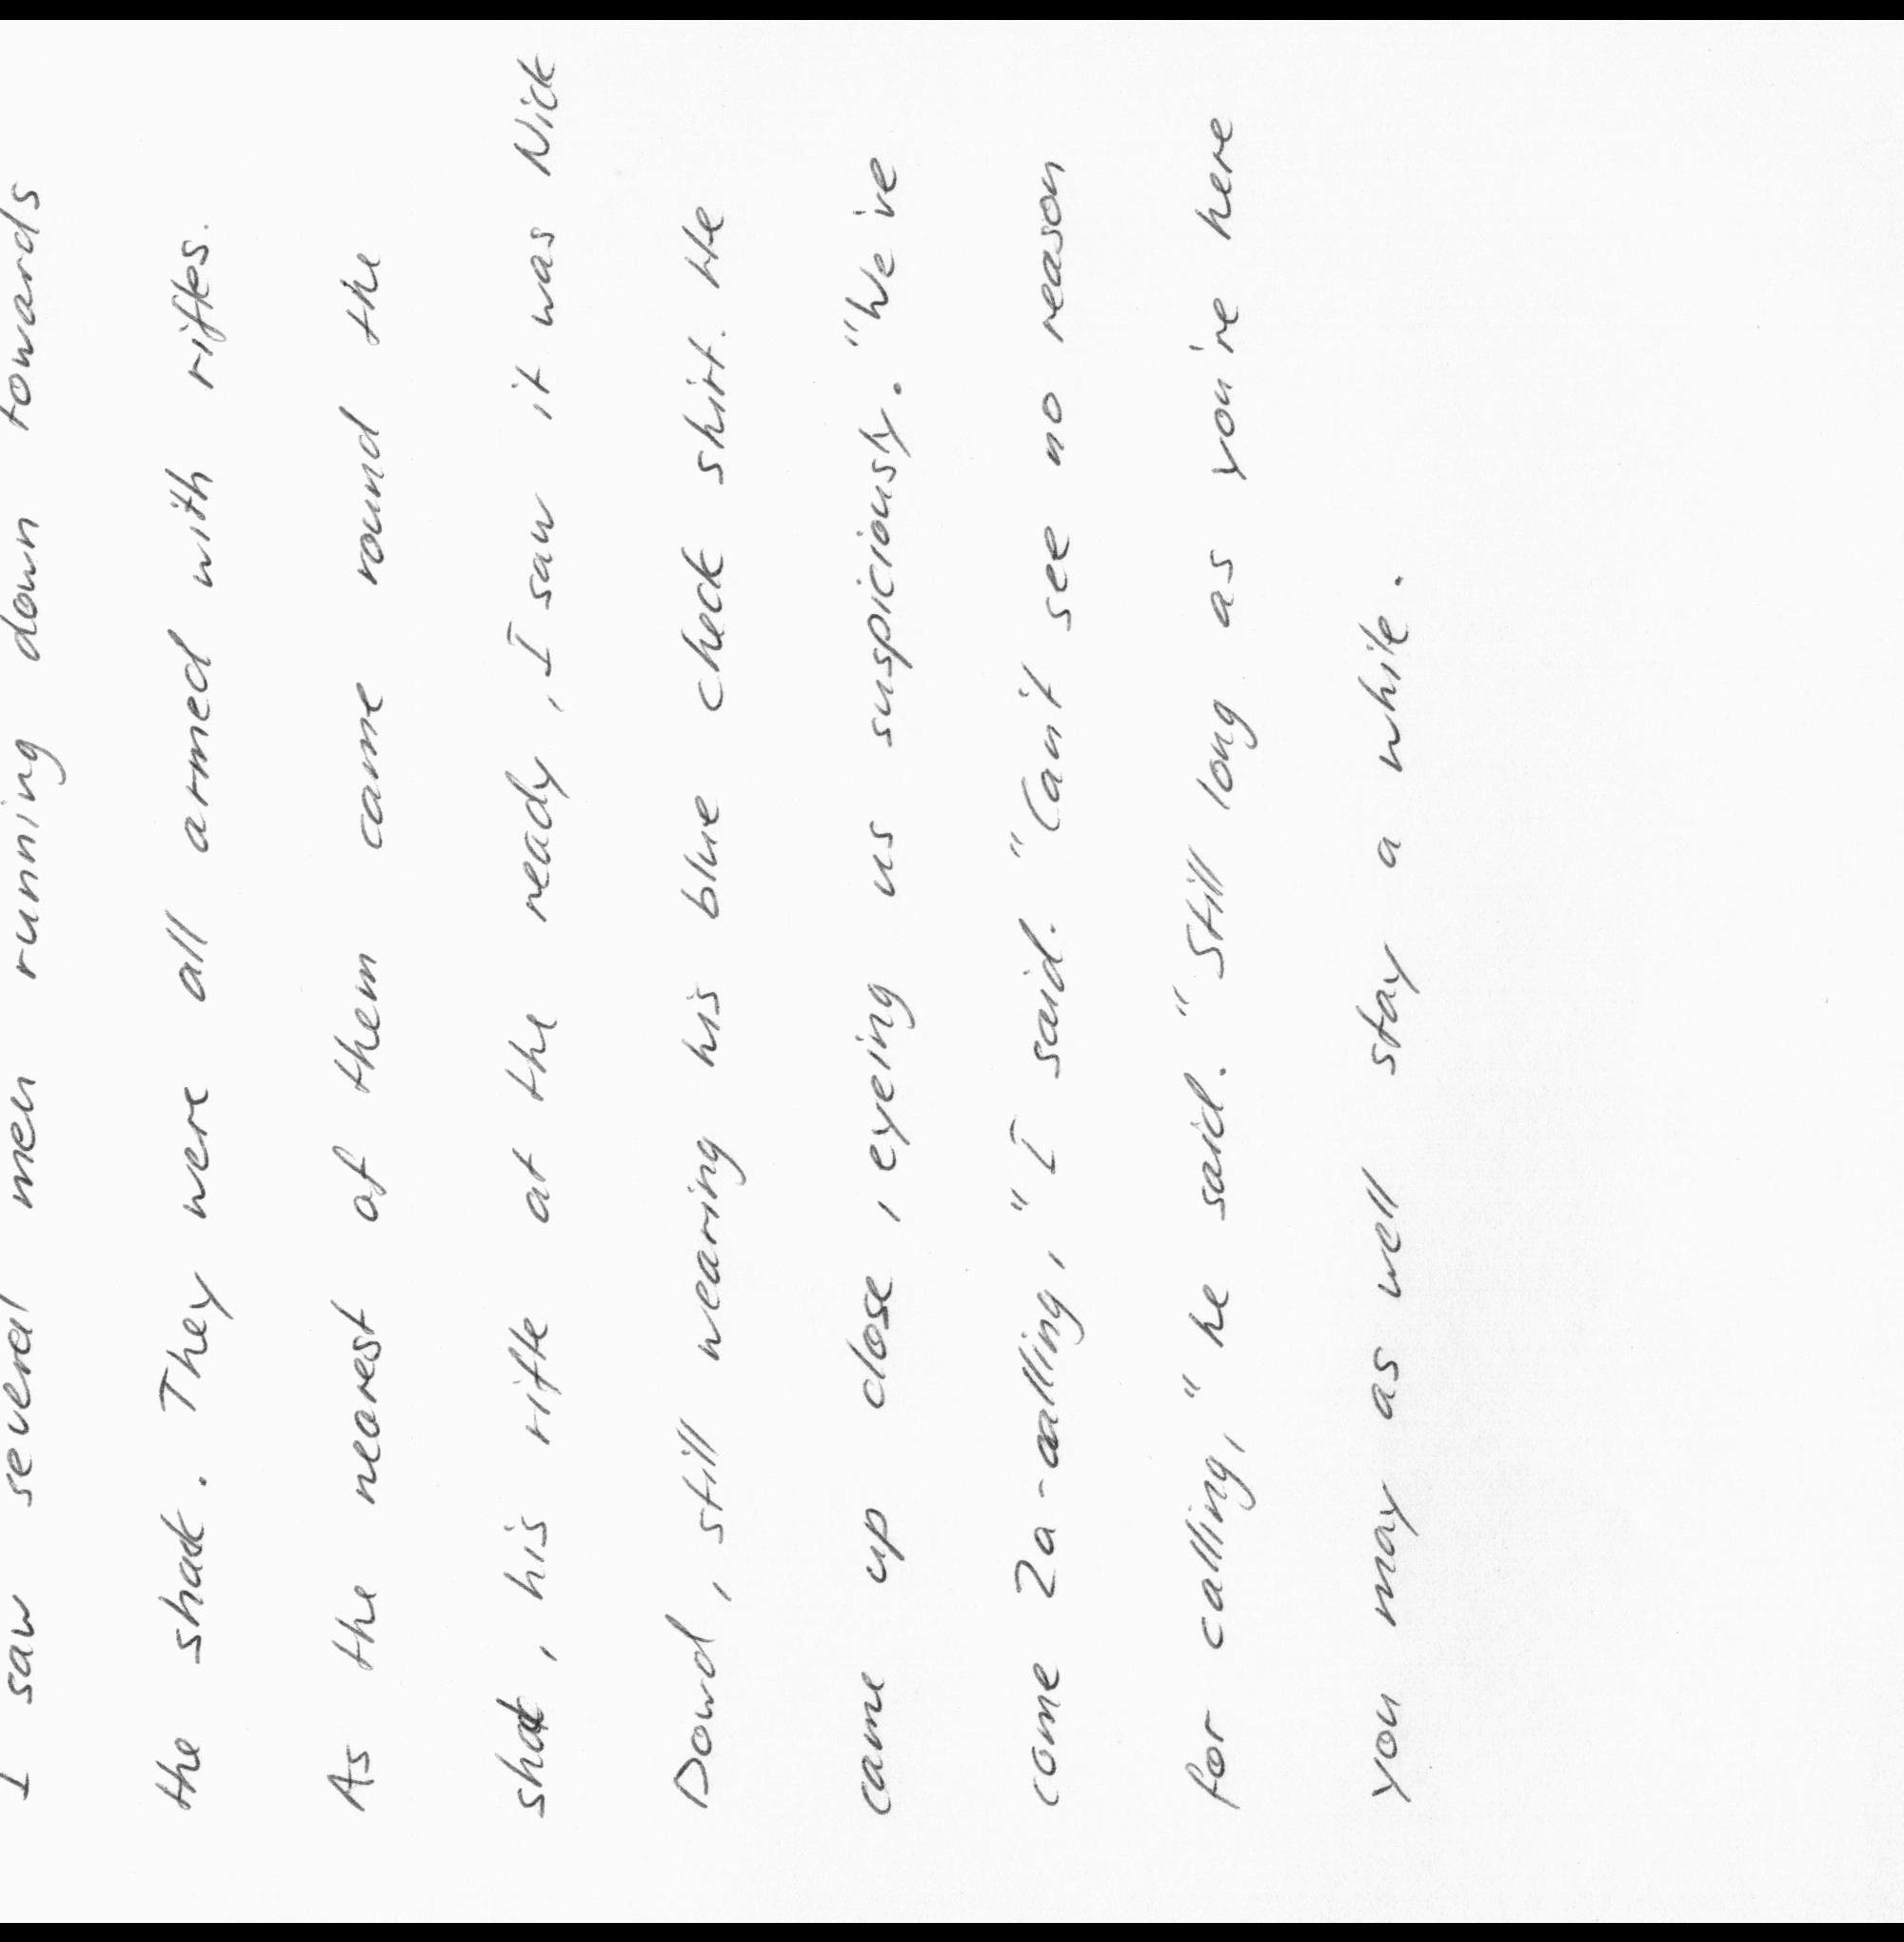 I saw several men running down towards
the shack. They were all armed with rifles.
As the nearest of them came round the
shack, his rifle at the ready, I saw it was Nick
Dowd, still wearing his blue check shirt. He
came up close, eyeing us suspiciously. "We've
come 2a-calling," I said. "Can't see no reason
for calling," he said. "Still long as you're here
you may as well stay a while.